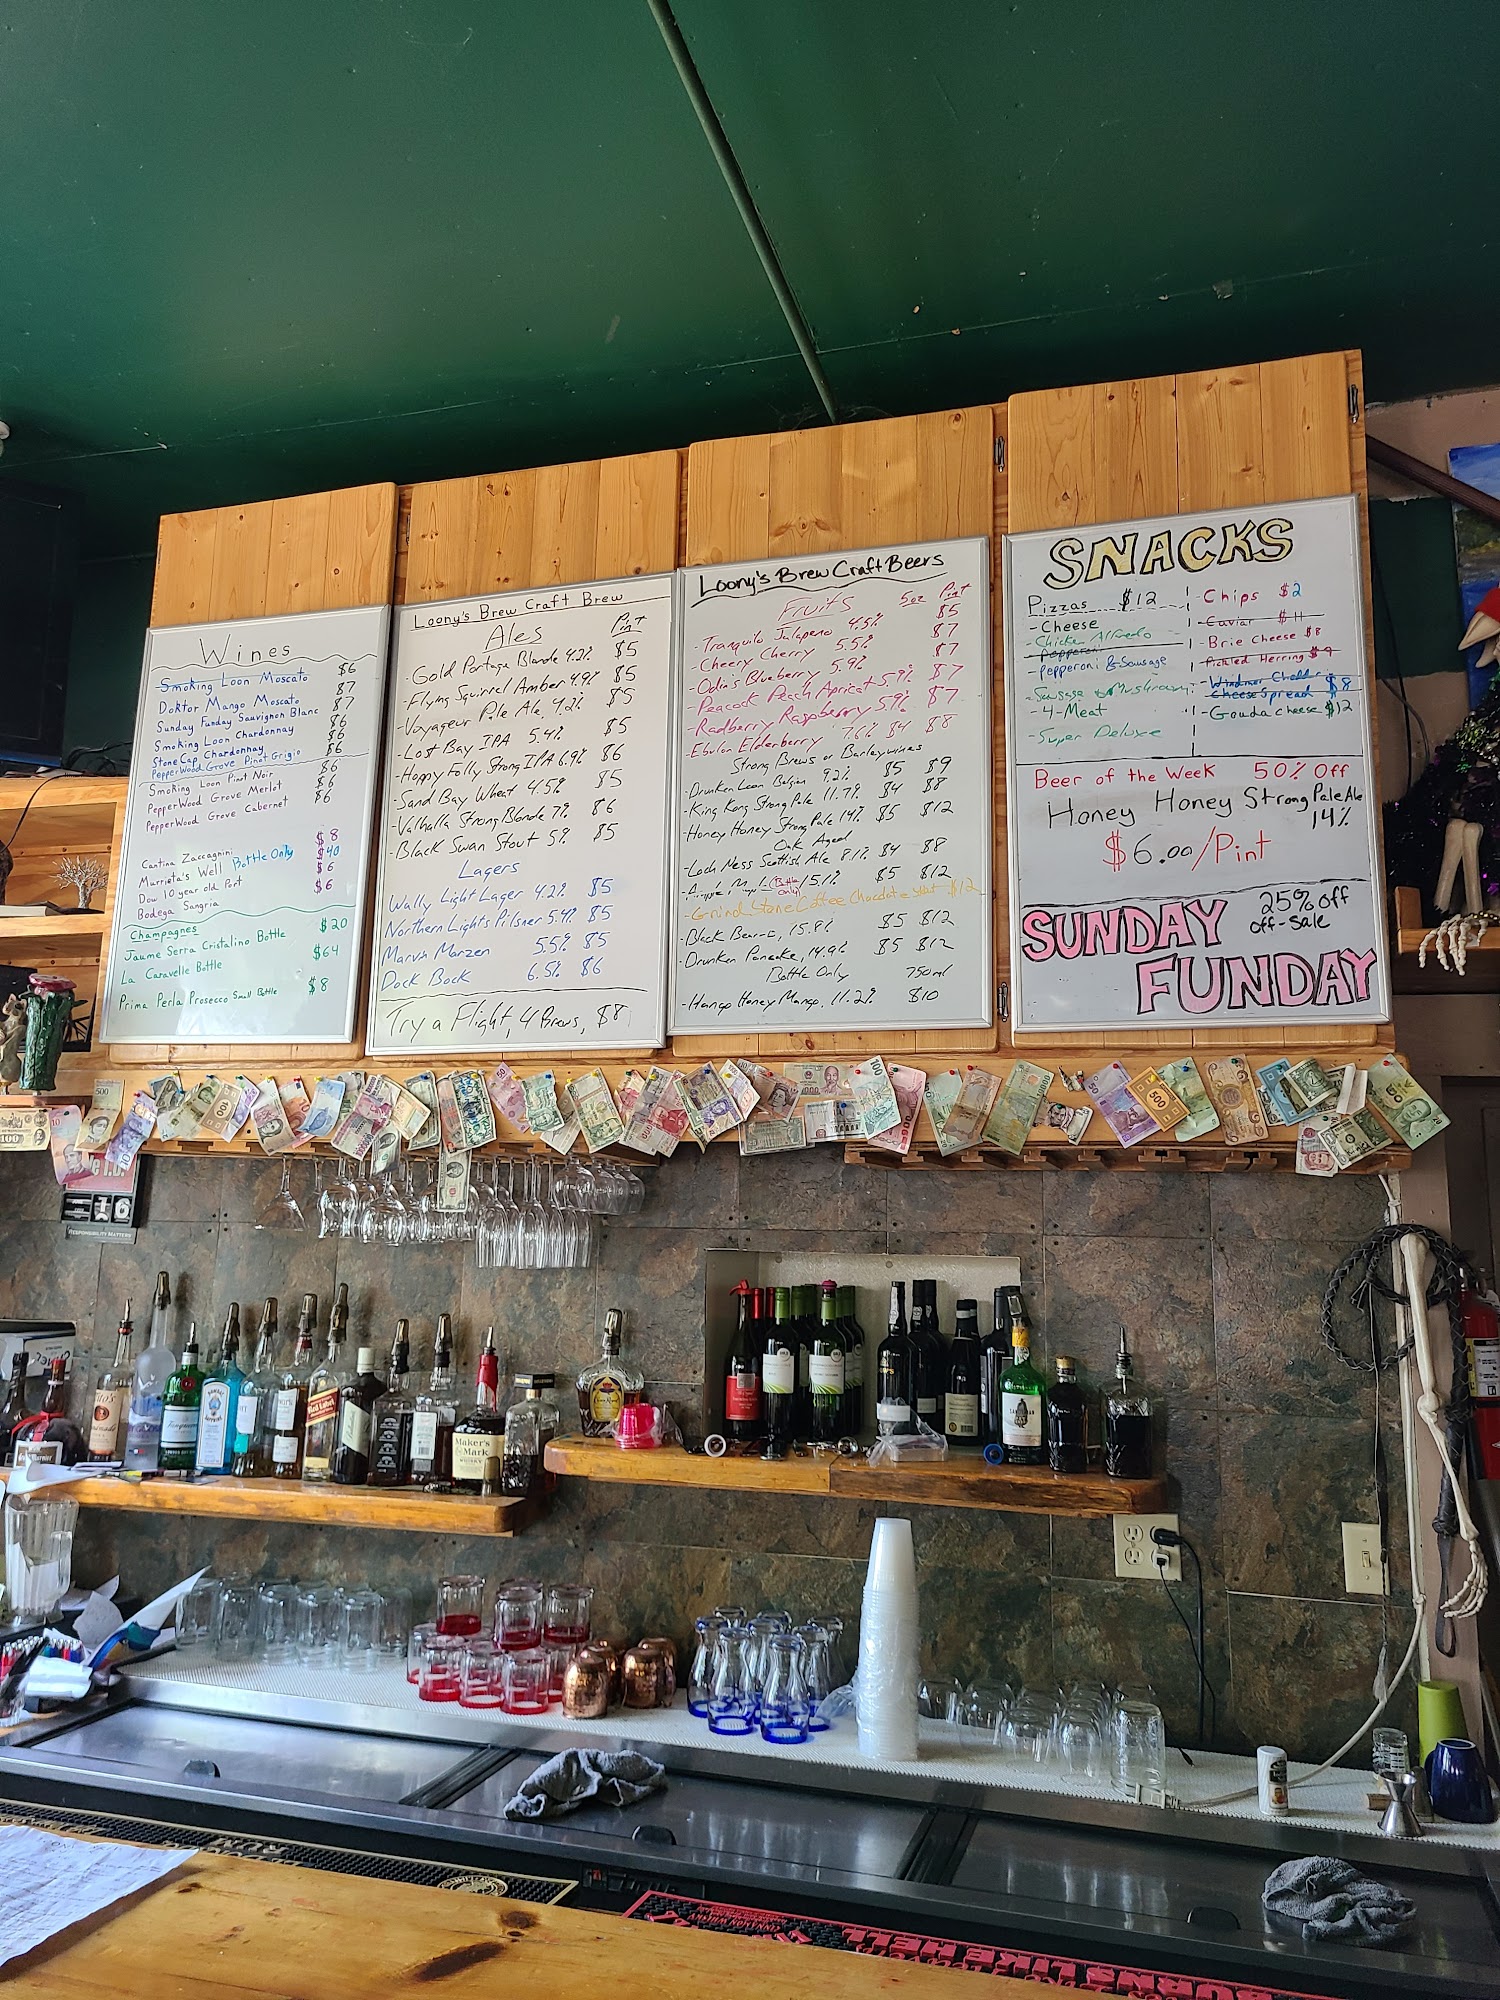 Wines
Smoking Loon Moscato $6
Doktor Mango Moscato $7
Sunday Funday Sauvignon Blanc $7
Smoking Loon Chardonnay $6
Stone Cap Chardonnay $6
PepperWood Grove Pinot Grigio $6
Smoking Loon Pinot Noir $6
PepperWood Grove Merlot $6
PepperWood Grove Cabernet $6
Cantina Zaccagnini $8
Murrieta's Well Bottle Only $40
Dow 10 year old Port $6
Bodega Sangria $6
Champagnes
Jaume Serra Cristalino Bottle $20
La Caravelle Bottle $64
Prima Perla Prosecco Small Bottle $8
Loony's Brew Craft Brew
Ales Pint
-Gold Portage Blonde 4.2% $5
-Flying Squirrel Amber 4.9% $5
-Voyageur Pale Ale, 4.2% $5
-Lost Bay IPA 5.4% $5
-Happy Folly Strong IPA 6.9% $6
-Sand Bay Wheat 4.5% $5
-Valhalla Strong Blonde 7% $6
-Black Swan Stout 5% $5
Lagers
Wally Light Lager 4.2% $5
Northern Lights Pilsner 5.4% $5
Marvin Marzen 5.5% $5
Dock Bock 6.5% $6
Try a Flight, 4 Brews, $8
Loony's Brew Craft Beers
Fruits 5oz Pint
-Tranquilo Jalapeno 4.5% $5
-Cheery Cherry 5.5% $7
-Odin's Blueberry 5.9% $7
-Peacock Peach Apricot 5.9% $7
-Radberry Raspberry 5.7% $7
-Ebulon Elderberry 7.6% $4 $8
Strong Brews or Barleywines
-Drunken Loon Belgian 9.2% $5 $9
-King Kong Strong Pale 11.7% $4 $8
-Honey Honey Strong Pale 14% $5 $12
Oak Aged
-Loch Ness Scottish Ale 8.1% $4 $8
(Bottle only) 15.1% $5 $12
-Grindstone Coffee Chocolate Stout $12
-Black Bear-e, 15.8% $5 $12
-Drunken Pancake, 14.9% $5 $12
Bottle Only 750ml
-Hango Honey Mango, 11.2% $10
SNACKS
Pizzas $12
-Cheese
-Chicken Alfredo
-Pepperoni
-Pepperoni & Sausage
-Sausage & Mushroom
-4-Meat
-Super Deluxe
-Chips $2
-Caviar $11
-Brie Cheese $8
-Pickled Herring $9
-Windmer Cheddar
Cheese Spread $8
-Gouda Cheese $12
Beer of the Week 50% Off
Honey Honey Strong Pale Ale
14%
$6.00/Pint
SUNDAY
FUNDAY
25% off
off-sale
Maker's
Mark
Red Label
Tito's
BURNS LIKE HELL